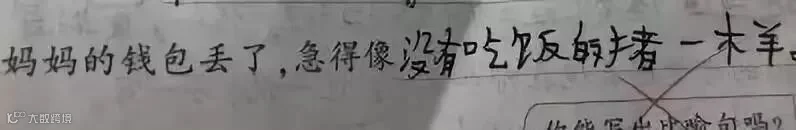 妈妈的钱包丢了,急得像没有吃饭的猪一木羊。
你能写出比喻句吗?
大数跨境